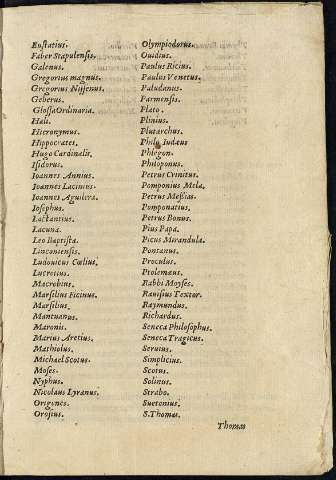 Eustatius.
Faber Stapulensis.
Galenus.
Gregorius magnus.
Gregorius Nissenus.
Geberus.
Glossa Ordinaria.
Hali.
Hieronymus.
Hippocrates.
Hugo Cardinalis.
Isidorus.
Ioannes Annius.
Ioannes Lacinius.
Ioannes Aguilera.
Iosephus.
Lactantius.
Lacuna.
Leo Baptista.
Linconiensis.
Ludouicus Cœlius.
Lucretius.
Macrobius.
Marsilius Ficinus.
Marsilius.
Mantuanus.
Maronis.
Marius Aretius.
Mathiolus.
Michael Scotus.
Moses.
Nyphus.
Nicolaus Lyranus.
Origenes.
Orosius.
Olympiodorus.
Ouidius.
Paulus Ricius.
Paulus Venetus.
Paludanus.
Parmensis.
Plato.
Plinius.
Plutarchus.
Philo Iudæus
Phlegon.
Philoponus.
Petrus Crinitus.
Pomponius Mela.
Petrus Messias.
Pomponatius.
Petrus Bonus.
Pius Papa.
Picus Mirandula.
Pontanus.
Proculus.
Ptolemæus.
Rabbi Moyses.
Rauisius Textor.
Raymundus.
Richardus.
Seneca Philosophus.
Seneca Tragicus.
Seruius.
Simplicius.
Scotus.
Solinus.
Strabo.
Suetonius.
S. Thomas.
Thomas